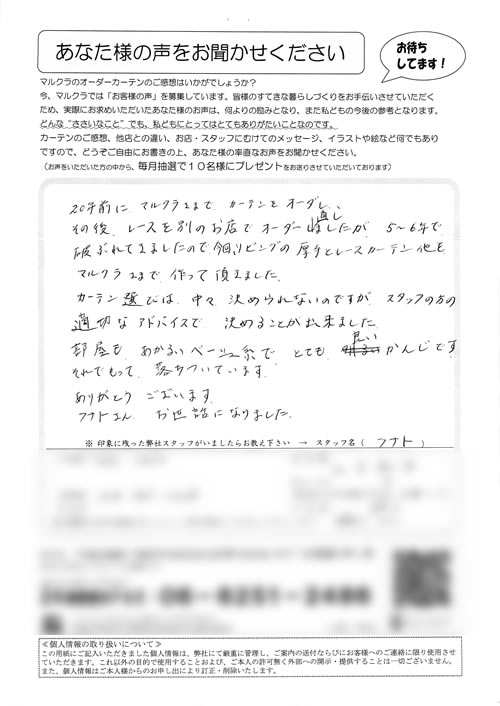 あなた様の声をお聞かせください
お待ち
してます！
マルクラのオーダーカーテンのご感想はいかがでしょうか？
今、マルクラでは「お客様の声」を募集しています。皆様のすてきな暮らしづくりをお手伝いさせていただく
ため、実際にお求めいただいたあなた様のお声は、何よりの励みとなり、また私どもの今後の参考となります。
どんな“ささいなこと”でも、私どもにとってはとてもありがたいことなのです。
カーテンのご感想、他店との違い、お店・スタッフにむけてのメッセージ、イラストや絵など何でもあり
ですので、どうぞご自由にお書きの上、あなた様の率直なお声をお聞かせください。
（お声をいただいた方の中から、毎月抽選で１０名様にプレゼントをお送りさせていただいております）
20年前に マルクラさまで カーテンとオーダし、
その後、レースを別のお店でオーダー直ししましたが 5〜6年で
破ぶれてきましたので今回リビングの厚手とレースカーテン他を
マルクラさまで 作って頂きました。
カーテン選びは、中々 決められないのですが スタッフの方の
適切なアドバイスで 決めることが出来ました
部屋も あかるいベージュ系で とても 良い かんじです
それでもって、落ちついています。
ありがとう ございます。
フナトさん、お世話になりました。
※ 印象に残った弊社スタッフがいましたらお教え下さい → スタッフ名（ フナト ）
06-6251-2486
≪個人情報の取り扱いについて≫
この用紙にご記入いただきました個人情報は、弊社にて厳重に管理し、ご案内の送付ならびにお客様へのご連絡に限り使用させ
ていただきます。これ以外の目的で使用することおよび、ご本人の許可無く外部への開示・提供することは一切ございません。
また、個人情報はご本人様からのお申し出により訂正・削除いたします。